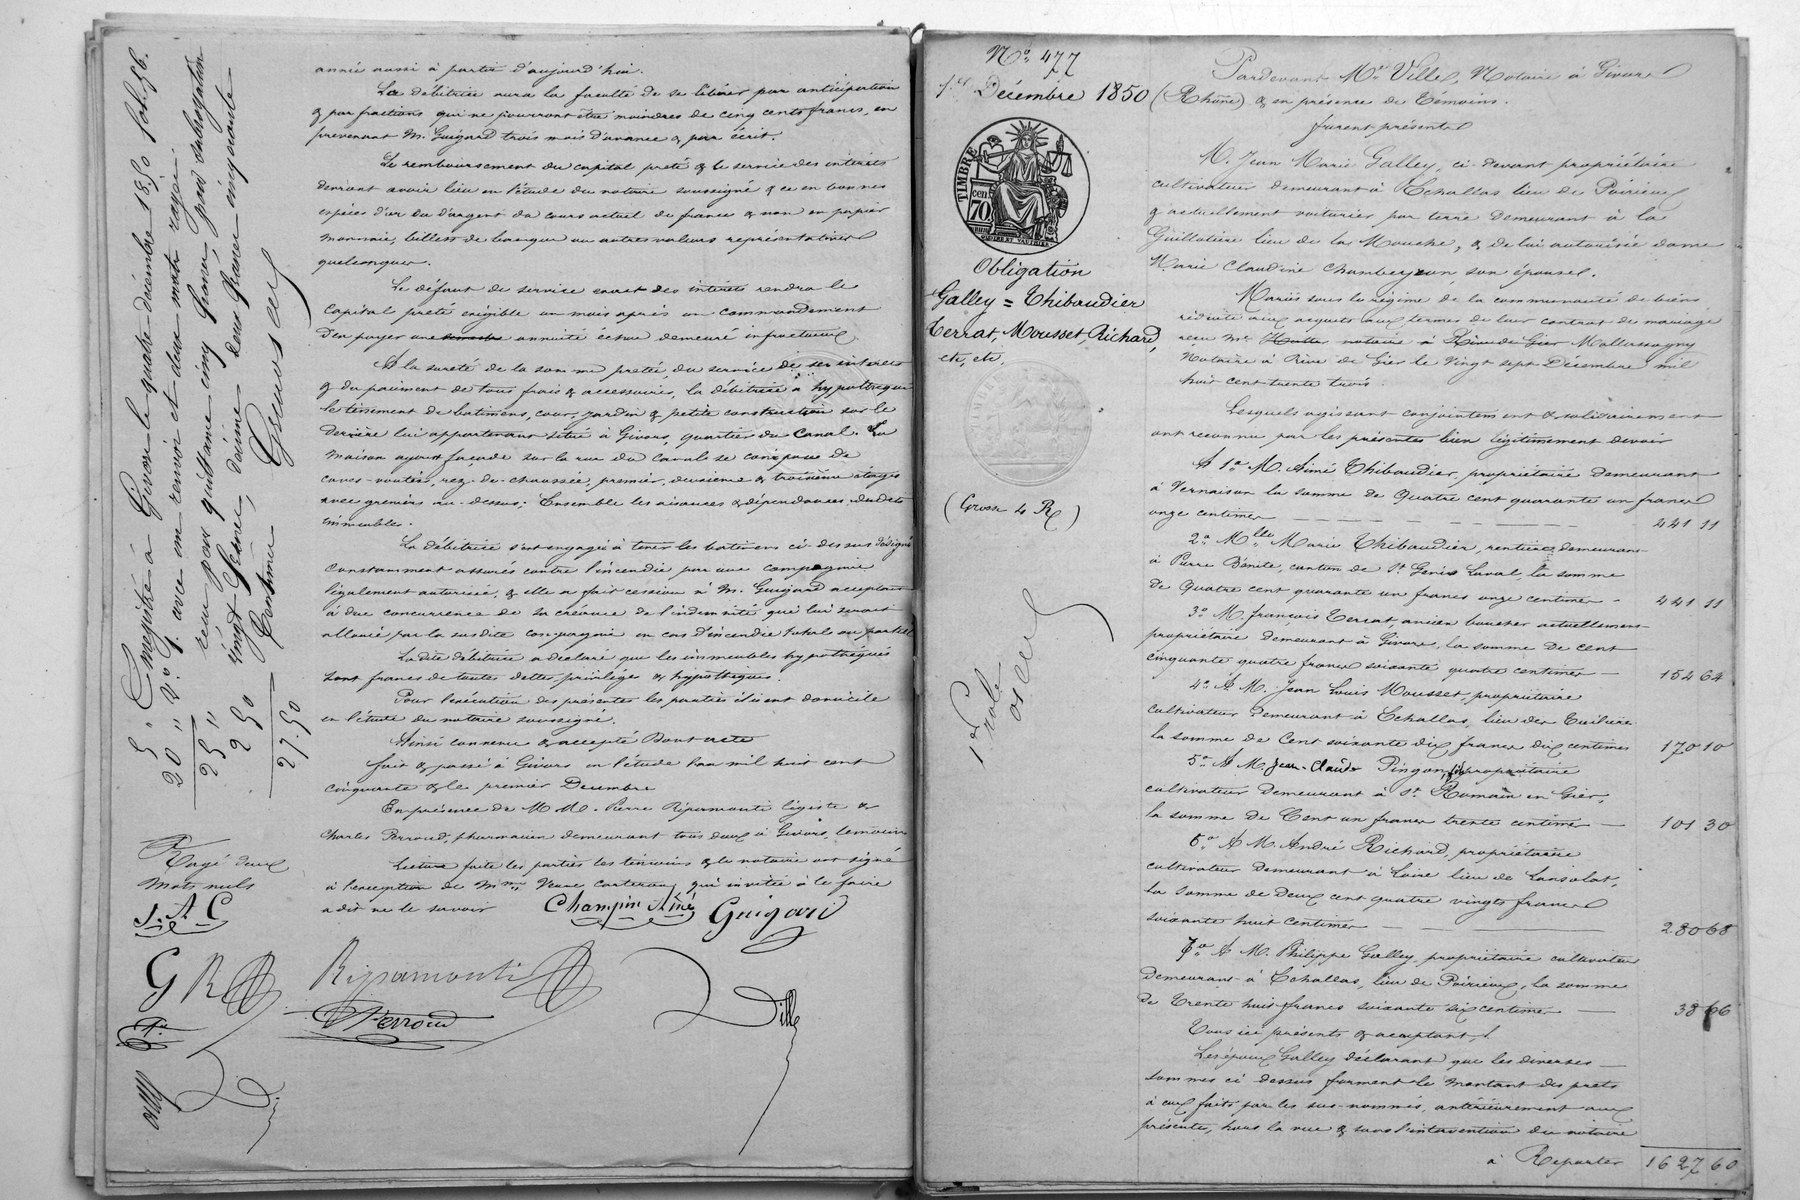 année aussi à partir d'aujourd'hui.
La débitrice aura la faculté de se libérer par anticipation
& par fractions qui ne pourront être moindres de cinq cents francs, en
prevenant M. Guigard trois mois d'avance & par écrit.
Le remboursement du capital preté & le service des intérêts
devront avoir lieu en l'étude du notaire soussigné & ce en bonnes
espèces d'or ou d'argent du cours actuel de france & non en papier
monnaie, billets de banque ou autres valeurs représentatives
quelconques.
Le défaut de service exact des intérêts rendra le
capital preté exigible un mois après un commandement
d'en payer une annuité échue demeuré infructueux
A la sureté de la somme pretée, du service de ses intérêts
& du paiement de tous frais & accessoires, la débitrice a hypothéqué
le tènement de batimens, cour, jardin & petite construction sur le
derrière lui appartenant situé à Givors, quartier du Canal. La
maison ayant façade sur la rue du Canal se compose de
caves voutées, rez-de-chaussée, premier, deuxième & troisième étages
avec greniers au-dessus; Ensemble les aisances & dépendances desdits
immeubles.
La débitrice s'est engagée à tenir les batimens ci-dessus désignés
constamment assurés contre l'incendie par une compagnie
légalement autorisée, & elle a fait cession à M. Guigard acceptant
à due concurrence de sa créance de l'indemnité qui lui serait
allouée par la susdite compagnie en cas d'incendie total ou partiel
La dite débitrice a déclaré que les immeubles hypothéqués
sont francs de toutes dettes, privilèges & hypothèques.
Pour l'exécution des présentes les parties élisent domicile
en l'étude du notaire soussigné.
Ainsi convenu & accepté Dont acte
fait & passé à Givors en l'étude l'an mil huit cent
cinquante & le premier Décembre
En présence de M M. Pierre Ripamonti légiste &
Charles Perroud, pharmacien demeurant tous deux à Givors, témoins
Lecture faite les parties les témoins & le notaire ont signé
à l'exception de Mme Veuve qui invitée à le faire
a dit ne le savoir
Champin Aîné Guigard
Ripamonti
Perroud
Ville
Rayé deux
mots nuls
J. A C
G R
Enregistré à Givors le quatre décembre 1850 fol. 56.
Vo. avec un renvoi et deux mots rayés.
reçu pour quittance cinq francs, pour subrogation
vingt francs, décime deux francs cinquante
Centimes,
5 "
20 "
25 "
2 50
27.50
No. 477
1er Décembre 1850
TIMBRE
cen
70
Obligation
Galley = Thibaudier
Terrat, Mousset, Richard,
etc, etc.
(Grosse 4 R)
1 role
Pardevant Me Ville, Notaire à Givors
(Rhône) & en présence de Témoins.
furent présents
M. Jean Marie Galley, ci-devant propriétaire
cultivateur demeurant à Echallas lieu de Poirieux
& actuellement voiturier par terre demeurant à la
Guillotière lieu de la Mouche, & de lui autorisée dame
Marie Claudine son épouse.
Mariés sous le régime de la communauté de biens
réduite aux acquets aux termes de leur contrat de mariage
reçu Me notaire à Rive de Gier
Notaire à Rive de Gier le Vingt sept Décembre mil
huit cent trente trois.
Lesquels agissant conjointement & solidairement
ont reconnu par les présentes bien légitimement devoir
A 1o M. Aimé Thibaudier, propriétaire demeurant
à Vernaison la somme de Quatre cent quarante un francs
onze centimes 441 11
2o Mlle Marie Thibaudier, rentière demeurant
à Pierre Bénite, canton de St Genis Laval, la somme
de Quatre cent quarante un francs onze centimes - 441 11
3o M. françois Terrat, ancien boucher actuellement
propriétaire demeurant à Givors, la somme de cent
cinquante quatre francs soixante quatre centimes - 154 64
4o A M. Jean Louis Mousset, propriétaire
cultivateur demeurant à Echallas, lieu des Tuilières
la somme de Cent soixante dix francs dix centimes 170 10
5o A M. Jean-Claude Pingon, fils propriétaire
cultivateur demeurant à St Romain en Gier,
la somme de Cent un francs trente centimes - 101 30
6o A M. André Richard, propriétaire
cultivateur demeurant à Loire lieu de
la somme de Deux cent quatre vingts francs
soixante huit centimes - 280 68
7o A M. Philippe Galley propriétaire cultivateur
demeurant à Echallas, lieu de Poirieux, la somme
de Trente huit francs soixante six centimes - 38 66
Tous ici présents & acceptant,
Les époux Galley déclarant que les diverses
sommes ci dessus forment le montant des prets
à eux faits par les sus-nommés, antérieurement aux
présentes, hors la vue & sans l'intervention du notaire
à Reporter 1627 60